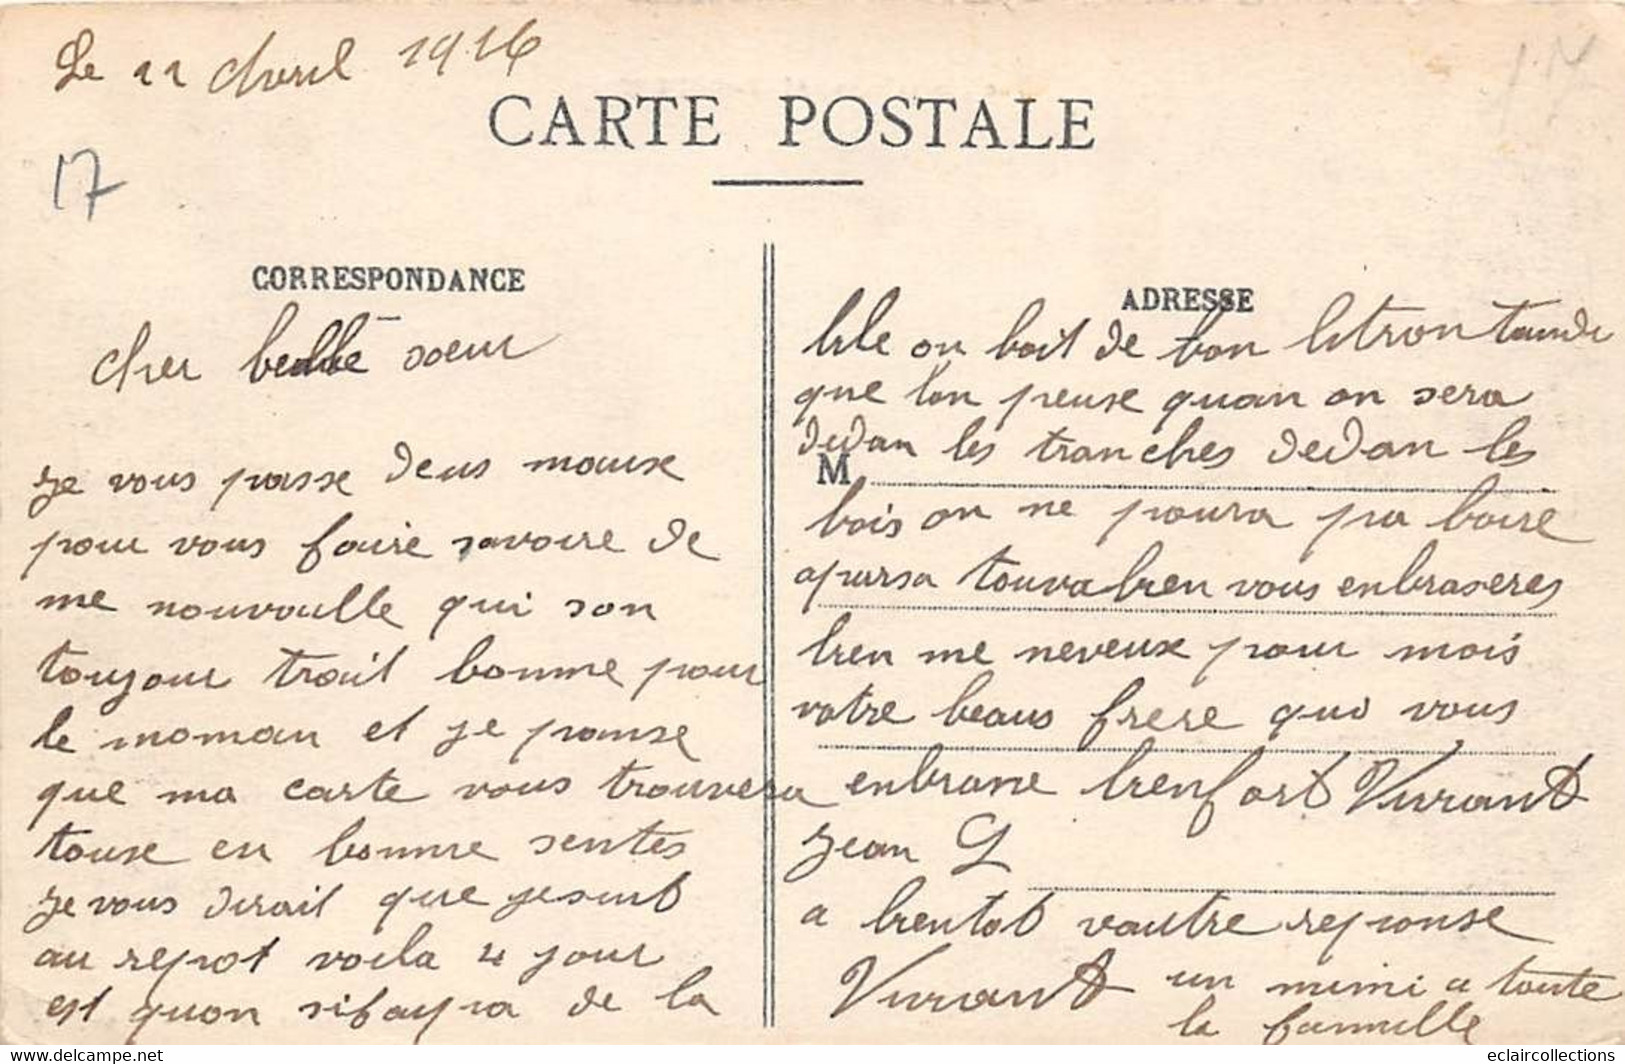 Le 11 Avril 1916
CARTE POSTALE
17
CORRESPONDANCE
cher bellle soeur
je vous passe deus mouse
pour vous faire savoire de
me nouvoulle qui son
toujour trait bonne pour
le moman et je pounse
que ma carte vous trouvera
touse en bonne sentes
je vous dirait que jesuit
au repot voila 4 jour
est quon sifaupa de la
ADRESSE
bile on boit de bon litron tamdi
que lon peuse quan on sera
dedan les tranches dedan les
M
bois on ne poura pa boire
apersa touvabien vous enbraseres
bien me neveux pour mois
votre beaus frere qui vous
enbrane bienfort Vivant
jean G
a bientot vautre reponse
Vivant un mimi a toute
la famille
eclaircollections